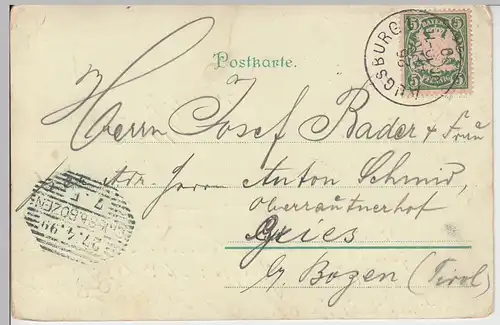 Postkarte.
AUGSBURG
5 BAYERN 5
5 PFENNIG 5
Herrn Josef Bader & Frau
Adr. Herrn Anton Schmid,
Oberrautnerhof
Gries
b/ Bozen (Tirol)
GRIES B. BOZEN
27.4.99